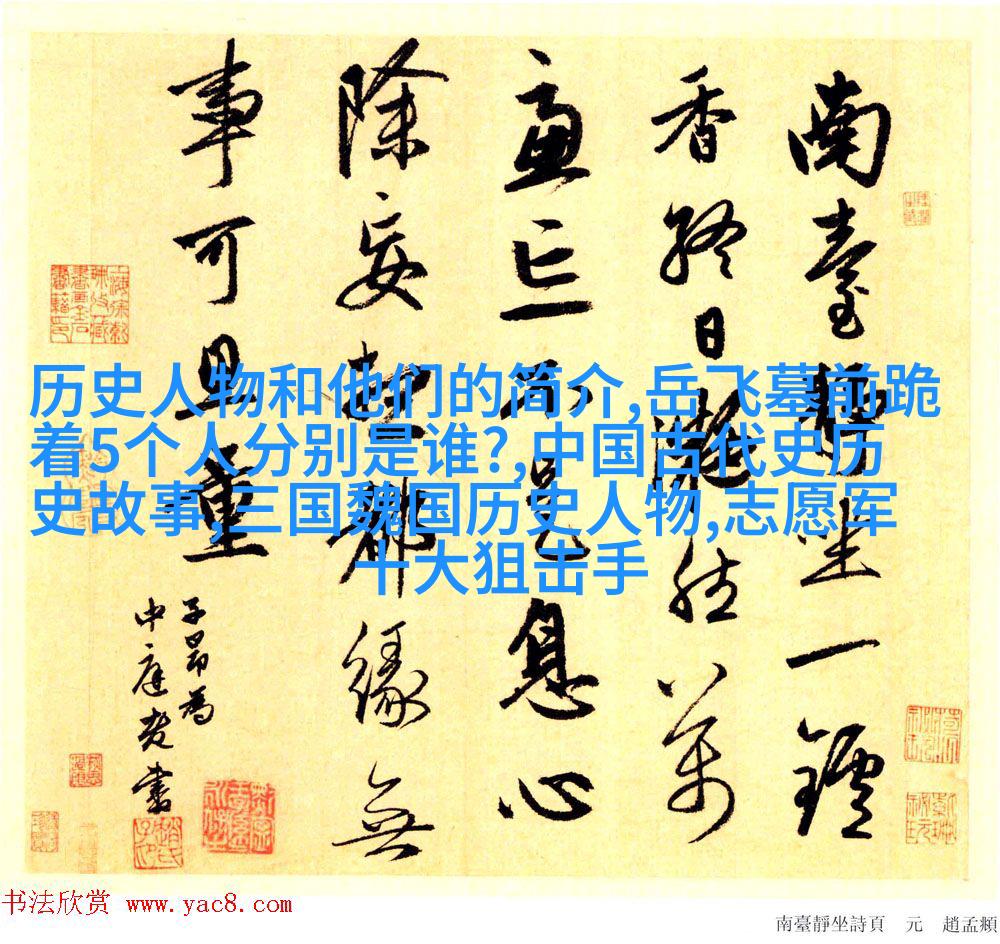 南臺靜坐一鑪
香終日凝然萬
慮亡不是息心
除妄想都緣無
事可思量
子昂為
中庭老書
历史人物和他们的简介,岳飞墓前跪
着5个人分别是谁?,中国古代史历
史故事,三国魏国历史人物,志愿军
十大狙击手
书法欣赏 www.yac8.com
南臺靜坐詩頁 元 趙孟頫